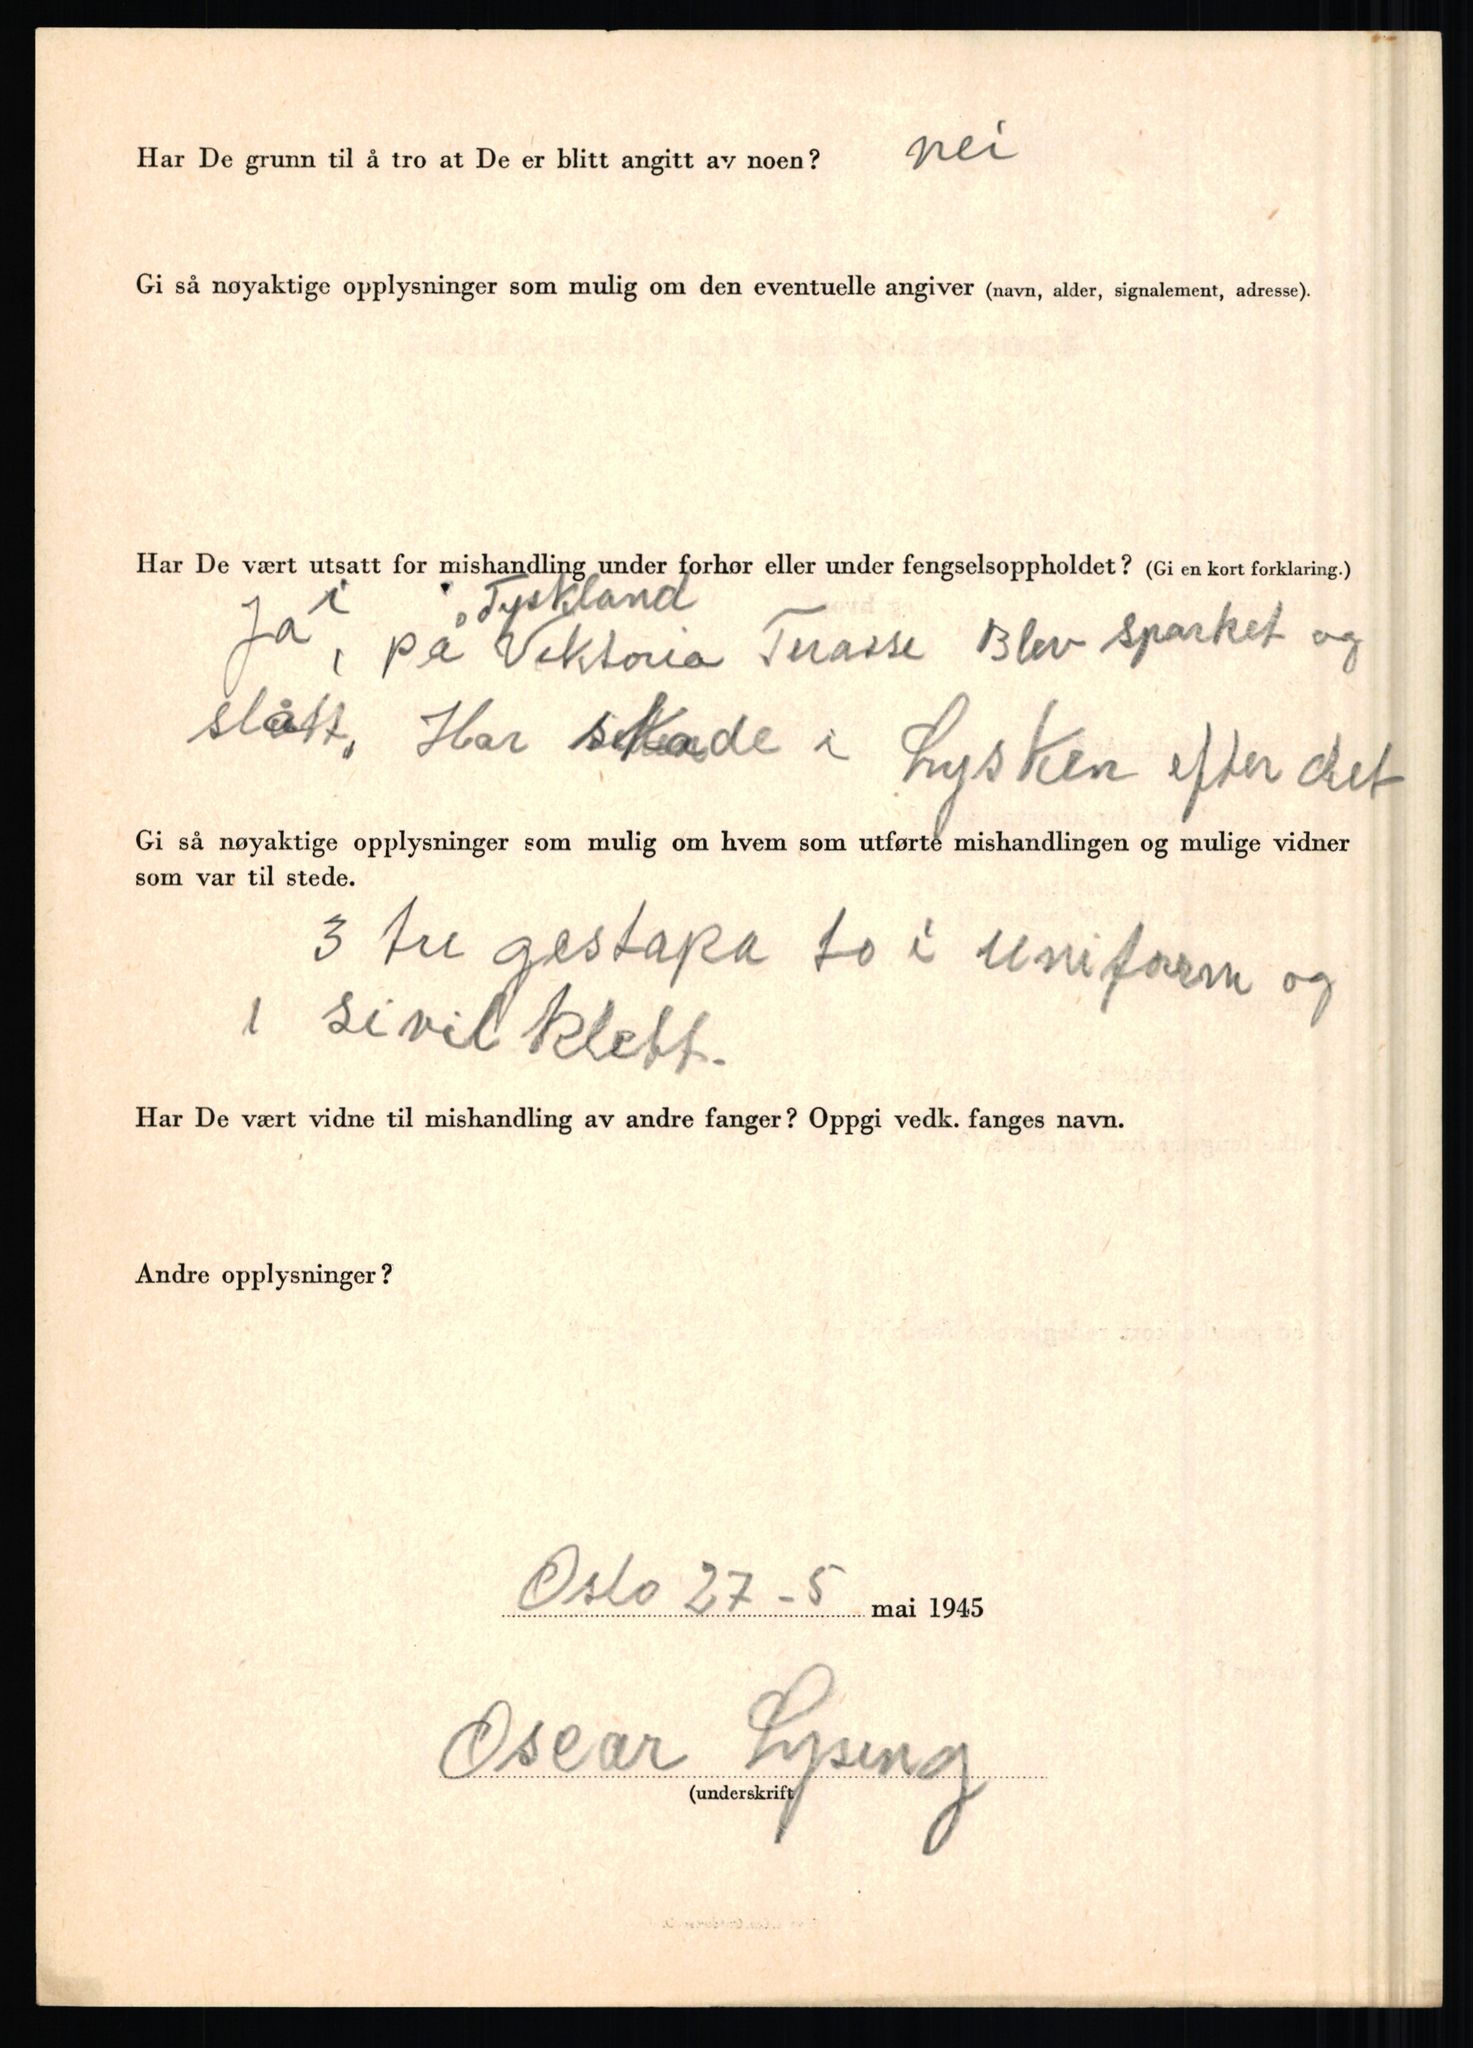 Har De grunn til å tro at De er blitt angitt av noen? nei
Gi så nøyaktige opplysninger som mulig om den eventuelle angiver (navn, alder, signalement, adresse).
Har De vært utsatt for mishandling under forhør eller under fengselsoppholdet? (Gi en kort forklaring.)
i Tyskland
Ja, på Viktoria Terasse Blev sparket og
slått. Har skade i Lysken efter det
Gi så nøyaktige opplysninger som mulig om hvem som utførte mishandlingen og mulige vidner
som var til stede.
3 tre gestapa to i uniform og
1 sivil klett.
Har De vært vidne til mishandling av andre fanger? Oppgi vedk. fanges navn.
Andre opplysninger?
Oslo 27-5 mai 1945
Oscar Lysing
(underskrift)